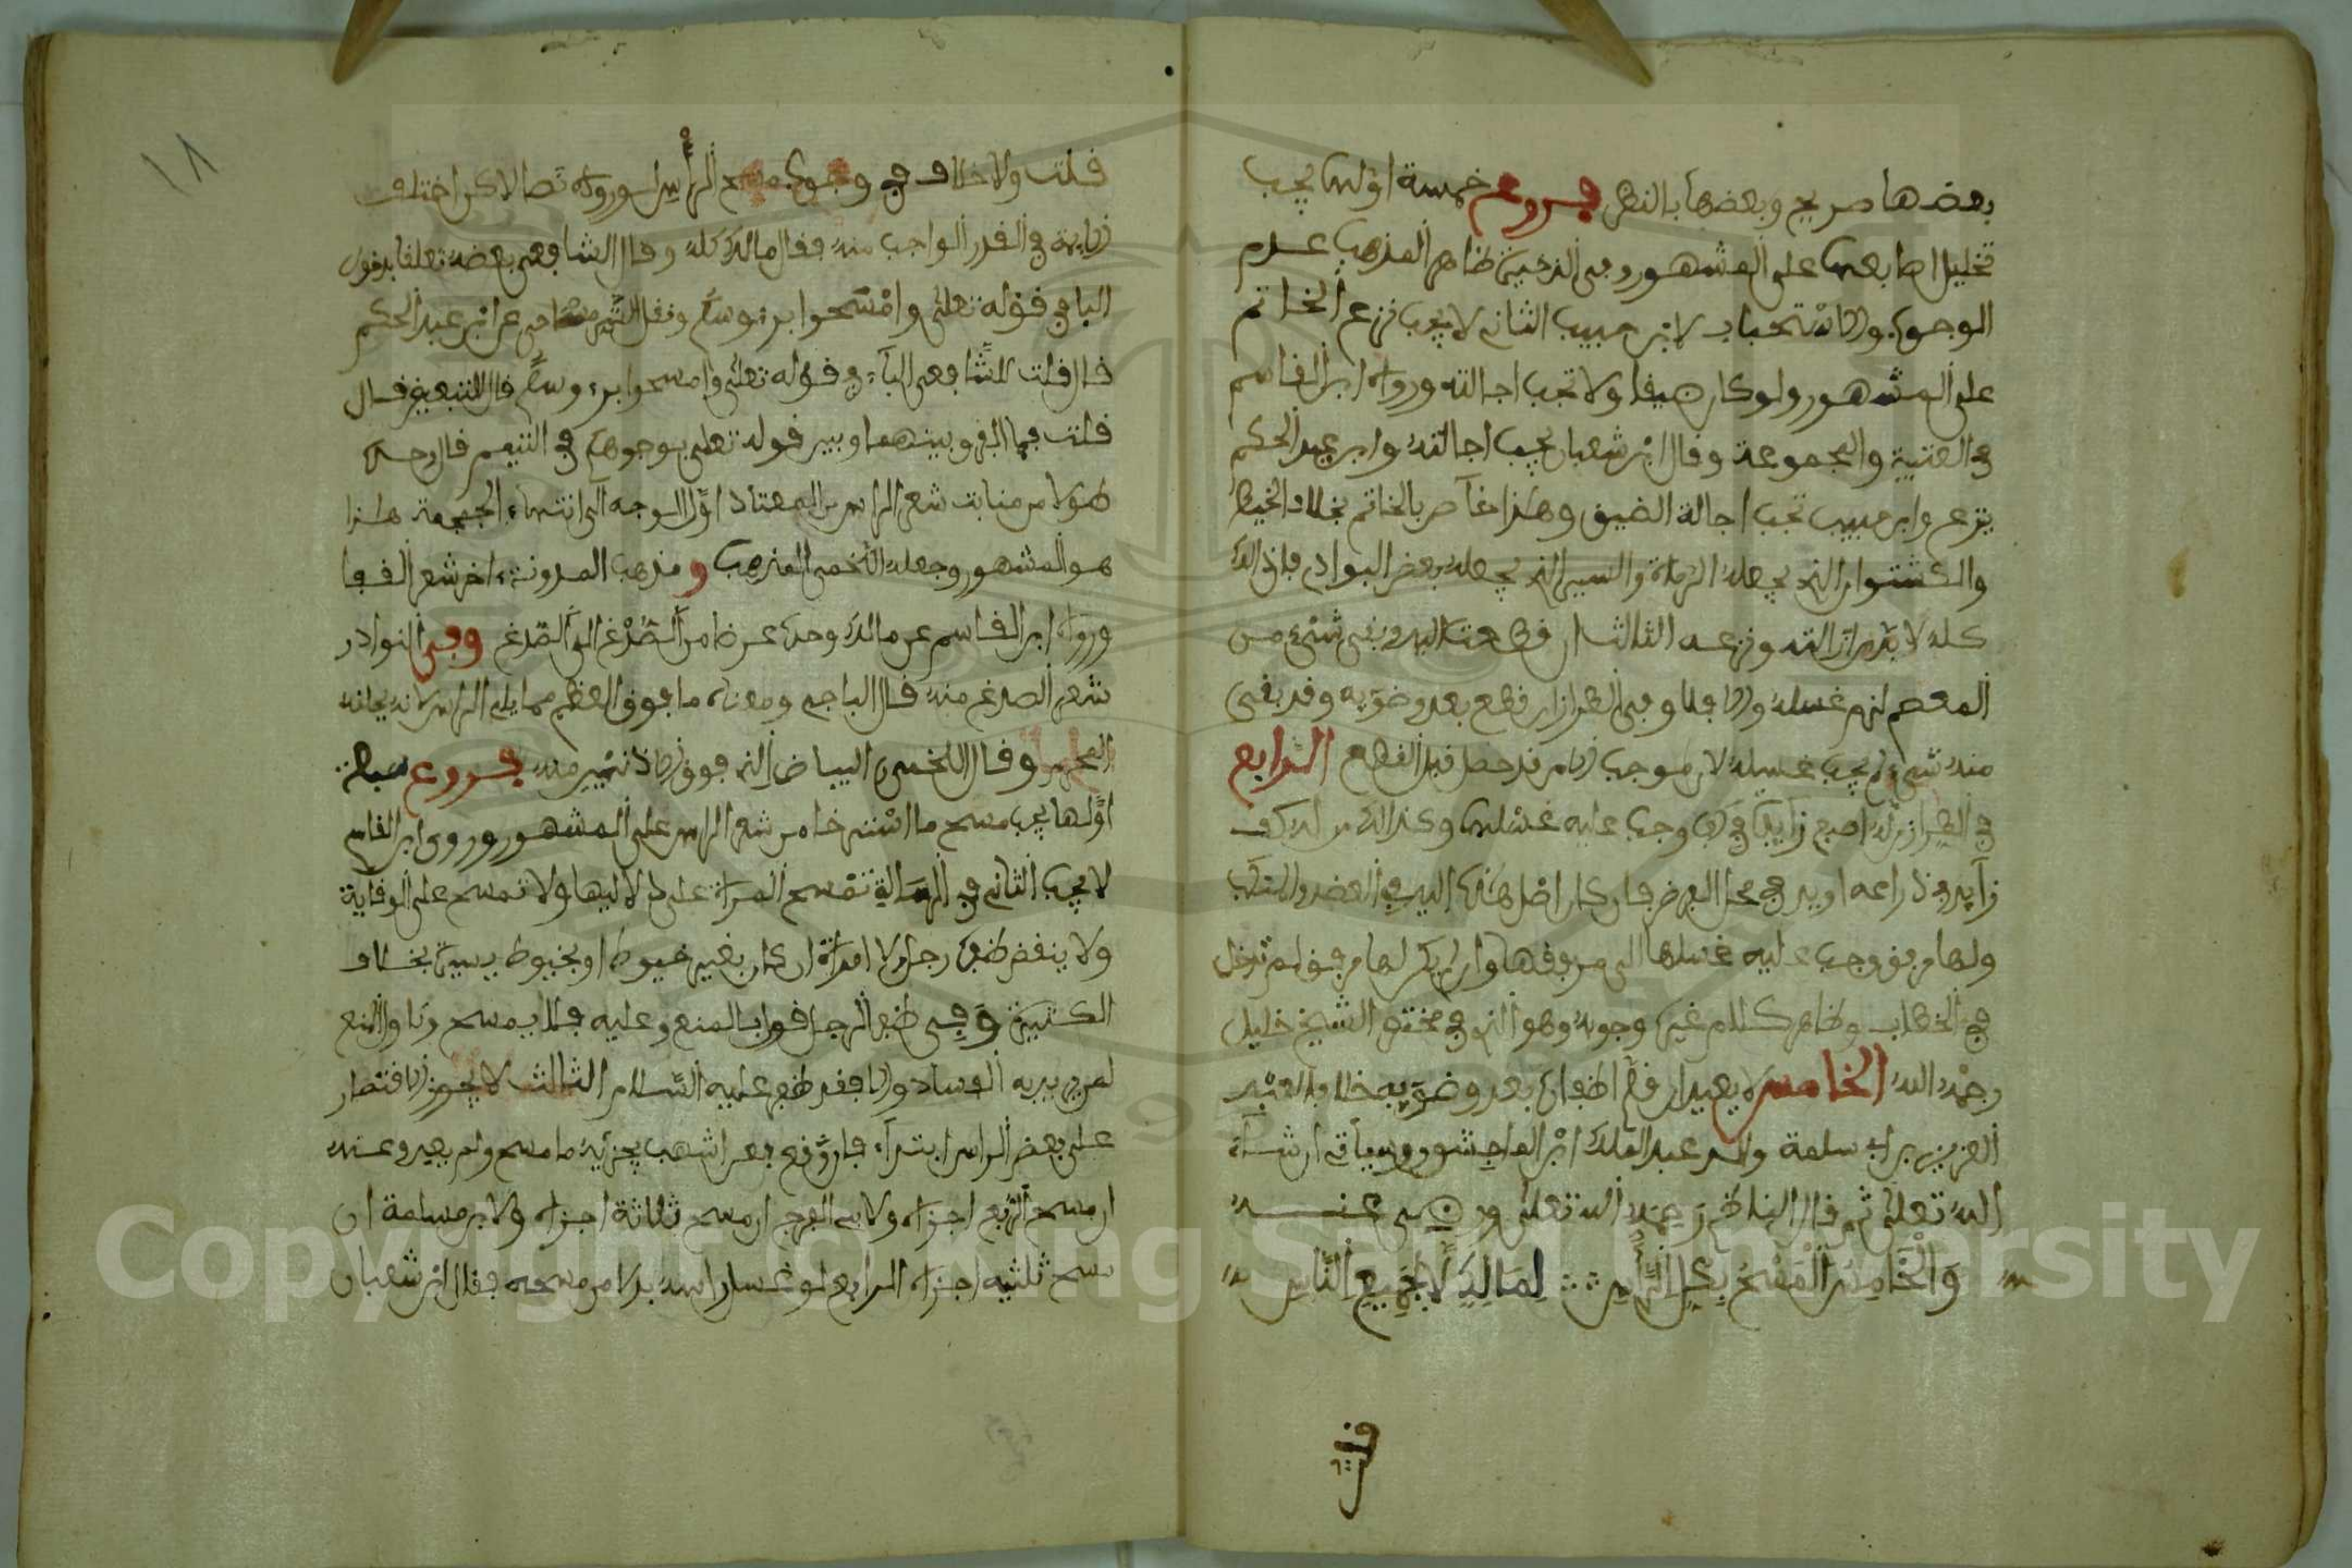 بعضها صريح وبعضها بالنظر فروع خمسة اولها يجب
تخليل اصابعها على المشهور وفى الذخيرة ظاهر المذهب عدم
الوجوب والاستحباب لابن حبيب الثاني لا يجب نزع الخاتم
على المشهور ولو كان ضيقا ولا تجب اجالته ورواه ابن القاسم
في العتبية والمجموعة وقال ابن شعبان يجب اجالته وابن عبد الحكم
ينزع وابن حبيب تجب اجالة الضيق وهذا خاص بالخاتم بخلاف الخيط
والكشتوان الذي يجعله الرماة والسير الذي يجعله بعض البوادي فان ذلك
كله لا بد من ازالته ونزعه الثالث ان قطعت اليد وبقى شىء من
المعصم لزم غسله والا فلا وفى الطراز ان قطع بعد وضوءه وقد بقى
منه شىء لم يجب غسله لان موجب الامر قد حصل قبل القطع الرابع
في الطراز من له اصبع زائدة في كفه وجب عليه غسلها وكذلك من له كف
زائد في ذراعه او يد في محل الفرض فان كان اصل هذه اليد في العضد والمنكب
ولها مرفق وجب عليه غسلها الى مرفقها وان لم يكن لها مرفق لم تدخل
في الخطاب وظاهر كلام غيره وجوبه وهو الذي في مختصر الشيخ خليل
رحمه الله الخامس لا يعيد ان قلم اظفاره بعد وضوءه خلافا لعبد
العزيز بن ابي سلمة والد عبد الملك ابن الماجشون وسياتي ان شاء
الله تعلى ثم قال الناظم رحمه الله تعلى ورضى عنه
وَالْخَامِسُ الْمَسْحُ بِكُلِّ الرَّاسِ لِمَالِكٍ لَا بِجَمِيعِ النَّاسِ
قلت
١٨
قلت ولا خلاف في وجوب مسح الرأس لوروده نصا لاكن اختلف
الايمة في القدر الواجب منه فقال مالك كله وقال الشافعي بعضه تعلقا بدخول
الباء في قوله تعلى وامسحوا برءوسكم ونقل عن ابن عبد الحكم
قال قلت للشافعي الباء في قوله تعلى وامسحوا برءوسكم قال للتبعيض قال
قلت فما الفرق بينهما وبين قوله تعلى بوجوهكم في التيمم قال وحده
طولا من منابت شعر الراس المعتاد اول الوجه الى انتهاء الجمجمة هذا
هو المشهور وجعله اللخمي المذهب و مذهب المدونة ءاخر شعر القفا
ورواه ابن القاسم عن مالك وحده عرضا من الصدغ الى الصدغ وفى النوادر
شعر الصدغ منه قال الباجي ومعناه ما فوق العظم مما يلي الراس لانه يحلقه
المحرم وقال اللخمي البياض الذي فوق الاذنين منه فروع سبعة
اولها يجب مسح ما استرخا من شعر الراس على المشهور وروى ابن القاسم
لا يجب الثاني في الرسالة تمسح المراة على دلاليها ولا تمسح على الوقاية
ولا ينقض ظفره رجل ولا امراة ان كان بغير خيوط او بخيوط يسيرة بخلاف
الكثيرة وفى ظفر الرجل قول بالمنع وعليه فلا يمسح والمنع
لمن يريد به الفساد والا فقد ظفر عليه السلام الثالث لا يجوز الاقتصار
على بعض الراس ابتداء فان وقع فعن اشهب يجزئه ما مسح ولم يعد وعنه
ان مسح الربع اجزاه ولابي الفرج ان مسح ثلاثة اجزاه ولابن مسلمة ان
مسح ثلثيه اجزاه الرابع لو غسل راسه بدلا من مسحه فقال ابن شعبان
Copyright © King Saud University